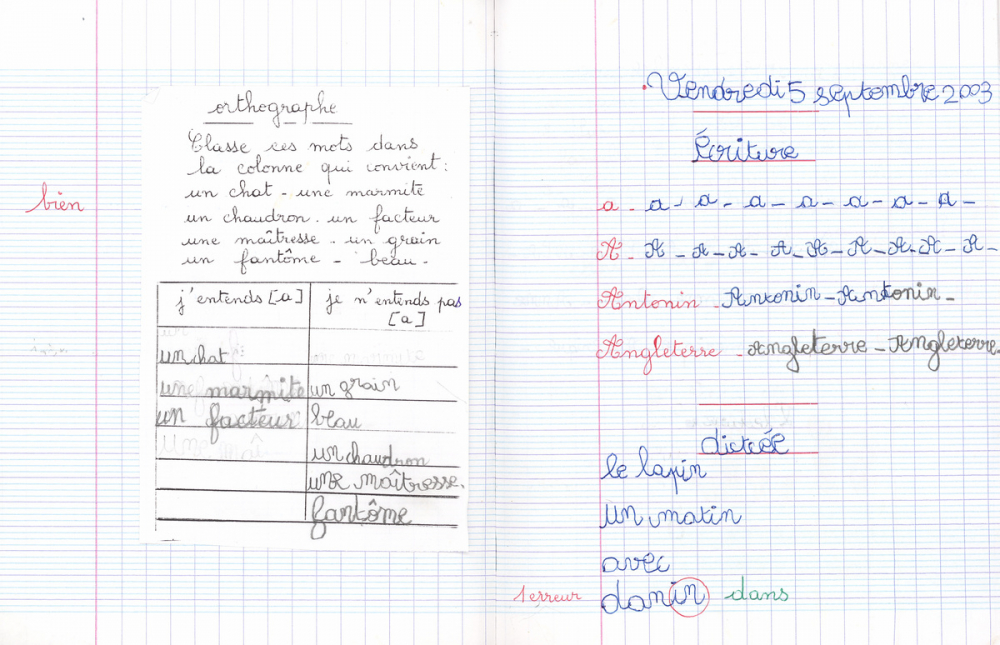 bien
orthographe
Classe ces mots dans
la colonne qui convient :
un chat - une marmite
un chaudron - un facteur
une maîtresse - un grain
un fantôme - beau -
j'entends [a] je n'entends pas [a]
un chat
une marmite un grain
un facteur beau
un chaudron
une maîtresse.
fantôme
Vendredi 5 septembre 2003
Écriture
a - a - a - a - a - a - a - a -
A - A - A - A - A - A - A - A - A - A -
Antonin - Antonin - Antonin -
Angleterre - Angleterre - Angleterre.
dictée
le lapin
un matin
avec
1 erreur danin dans